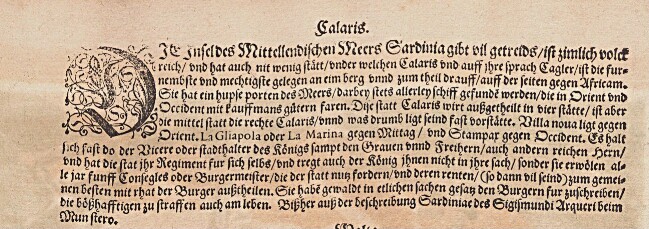 Calaris.
DIE Insel des Mittellendischen Meers Sardinia gibt vil getreids/ist zimlich volck
reich/ vnd hat auch nit wenig stått/vnder welchen Calaris vnd auff jhre sprach Cagler/ist die fur-
nembste vnd mechtigste gelegen an eim berg vnnd zum theil drauff/auff der seiten gegen Africam.
Sie hat ein hupse porten des Meers/darbey stets allerley schiff gefundē werden/die in Orient vnd
Occident mit kauffmans gütern faren. Dise statt Calaris wirt außgetheilt in vier stätte/ ist aber
die mittel statt die rechte Calaris/vnnd was drumb ligt seind fast vorstätte. Villa noua ligt gegen
Orient. La Gliapola oder La Marina gegen Mittag/ vnd Stampax gegen Occident. Es halt
sich fast do der Vicere oder stadthalter des Königs sampt den Grauen vnnd Freihern/auch andern reichen Hern/
vnd hat die stat jhr Regiment fur sich selbs/vnd tregt auch der König jhnen nicht in jhre sach/ sonder sie erwölen al-
le jar funff Consegles oder Burgermeister/die der statt nutz fordern/vnd deren renten/(so dann vil seind)zum gemei-
nen besten mit rhat der Burger außtheilen. Sie habē gewaldt in etlichen sachen gesatz den Burgern fur zuschreiben/
die bößhafftigen zu straffen auch am leben. Bißher auß der beschreibung Sardiniae des Sigismundi Arqueri beim
Munstero.